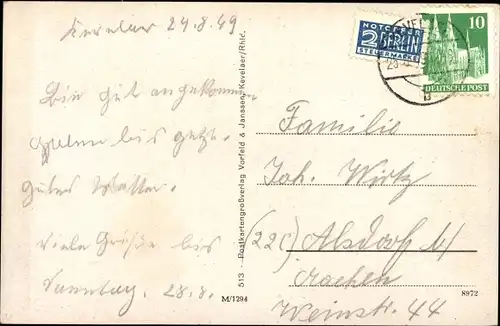 Kevelaer 24.8.49
Bin gut angekommen
bis jetzt.
gutes Wetter.
Viele Grüße bis
Sonntag. 28.8.
513 - Postkartengroßverlag Vorfeld & Janssen, Kevelaer/Rhld.
M/1294
NOTOPFER
2 BERLIN
STEUERMARKE
10
DEUTSCHE POST
Familie
Joh. Wirtz
(22c) Alsdorf b/
Aachen
Weinstr. 44
8972